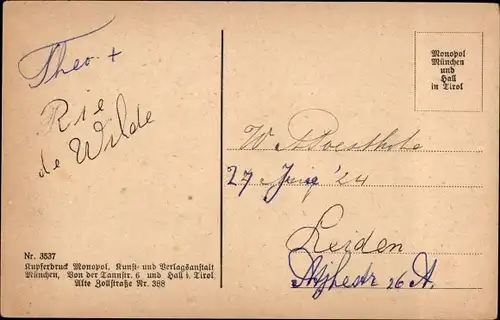 Theo +
Rie
de Wilde
Monopol
München
und
Hall
in Tirol
W.
27 '24
Leiden
26 A.
Nr. 3537
Kupferdruck Monopol, Kunst- und Verlagsanstalt
München, Von der Tannstr. 6 und Hall i. Tirol
Alte Zollstraße Nr. 388